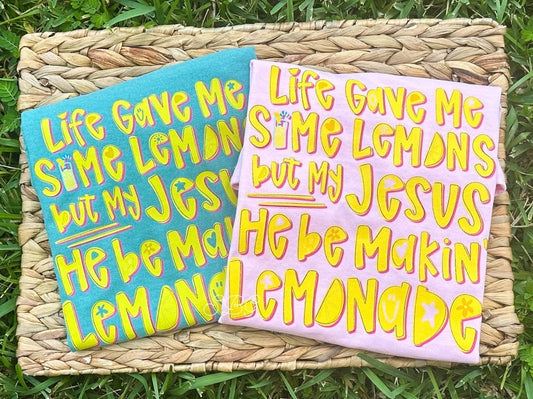 Life Gave Me
Some Lemon
but my Jesus
He be Makin
Lemona
Life Gave Me
Some Lemons
but my Jesus
He be Makin'
Lemonade